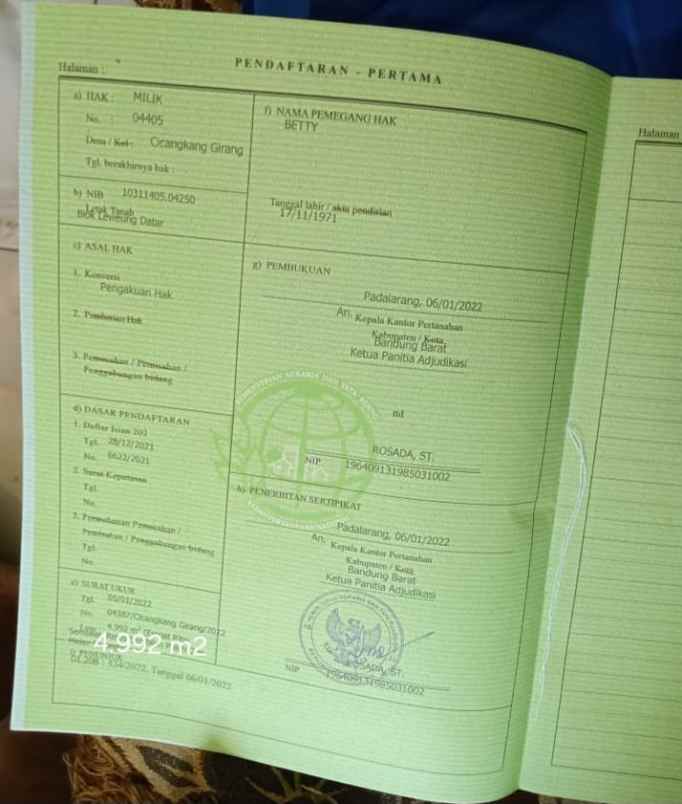 PENDAFTARAN - PERTAMA
Halaman :
a) HAK : MILIK
No. : 04405
Desa / Kel : Cicangkang Girang
Tgl. berakhirnya hak :
b) NIB 10311405.04250
Letak Tanah
Blok Leuweung Datar
c) ASAL HAK
1. Konversi
Pengakuan Hak
2. Pemberian Hak
3. Pemecahan / Pemisahan /
Penggabungan bidang
d) DASAR PENDAFTARAN
1. Daftar Isian 202
Tgl. 28/12/2021
No. 6622/2021
2. Surat Keputusan
Tgl.
No.
3. Permohonan Pemisahan /
Pemecahan / Penggabungan bidang
Tgl.
No.
e) SURAT UKUR
Tgl. 06/01/2022
No. 04387/Cicangkang Girang/2022
Luas : 4.992 m2
4.992 m2
Tanggal 06/01/2022
f) NAMA PEMEGANG HAK
BETTY
Tanggal lahir / akta pendirian
17/11/1971
g) PEMBUKUAN
Padalarang, 06/01/2022
An. Kepala Kantor Pertanahan
Kabupaten / Kota
Bandung Barat
Ketua Panitia Adjudikasi
ttd
ROSADA, ST.
NIP. 196409131985031002
h) PENERBITAN SERTIPIKAT
Padalarang, 06/01/2022
An. Kepala Kantor Pertanahan
Kabupaten / Kota
Bandung Barat
Ketua Panitia Adjudikasi
ROSADA, ST.
NIP 196409131985031002
Halaman